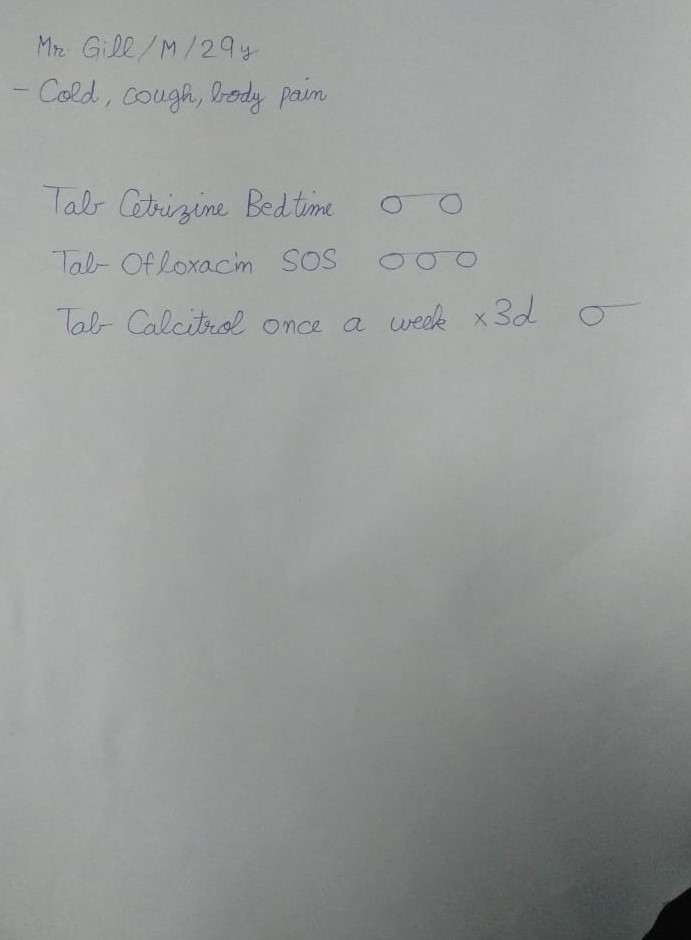 Mr. Gill/M/29y
- Cold, cough, body pain
Tab Cetrizine Bedtime
Tab Ofloxacin SOS
Tab Calcitrol once a week x3d